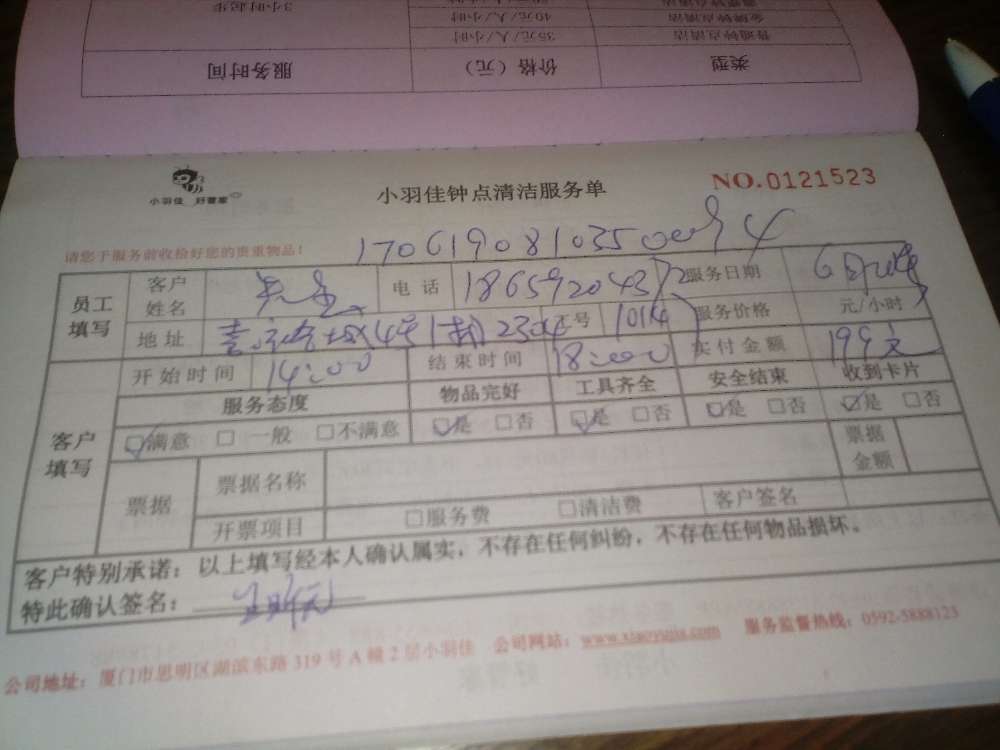 3小时起步
40元/人/小时 金牌钟点清洁
35元/人/小时 普通钟点清洁
服务时间 价格（元） 类型
小羽佳 好管家
小羽佳钟点清洁服务单
NO.0121523
请您于服务前收检好您的贵重物品！
员工填写
客户姓名
电话
服务日期
地址
1014
服务价格
元/小时
客户填写
开始时间 14:00
结束时间 18:00
实付金额 199元
服务态度 物品完好 工具齐全 安全结束 收到卡片
☑满意 □一般 □不满意 ☑是 □否 ☑是 □否 ☑是 □否 ☑是 □否
票据
票据名称
票据金额
开票项目 □服务费 □清洁费 客户签名
客户特别承诺：以上填写经本人确认属实，不存在任何纠纷，不存在任何物品损坏。
特此确认签名：
公司地址：厦门市思明区湖滨东路319号A幢2层小羽佳 公司网站：www.xiaoyujia.com 服务监督热线：0592-5888123